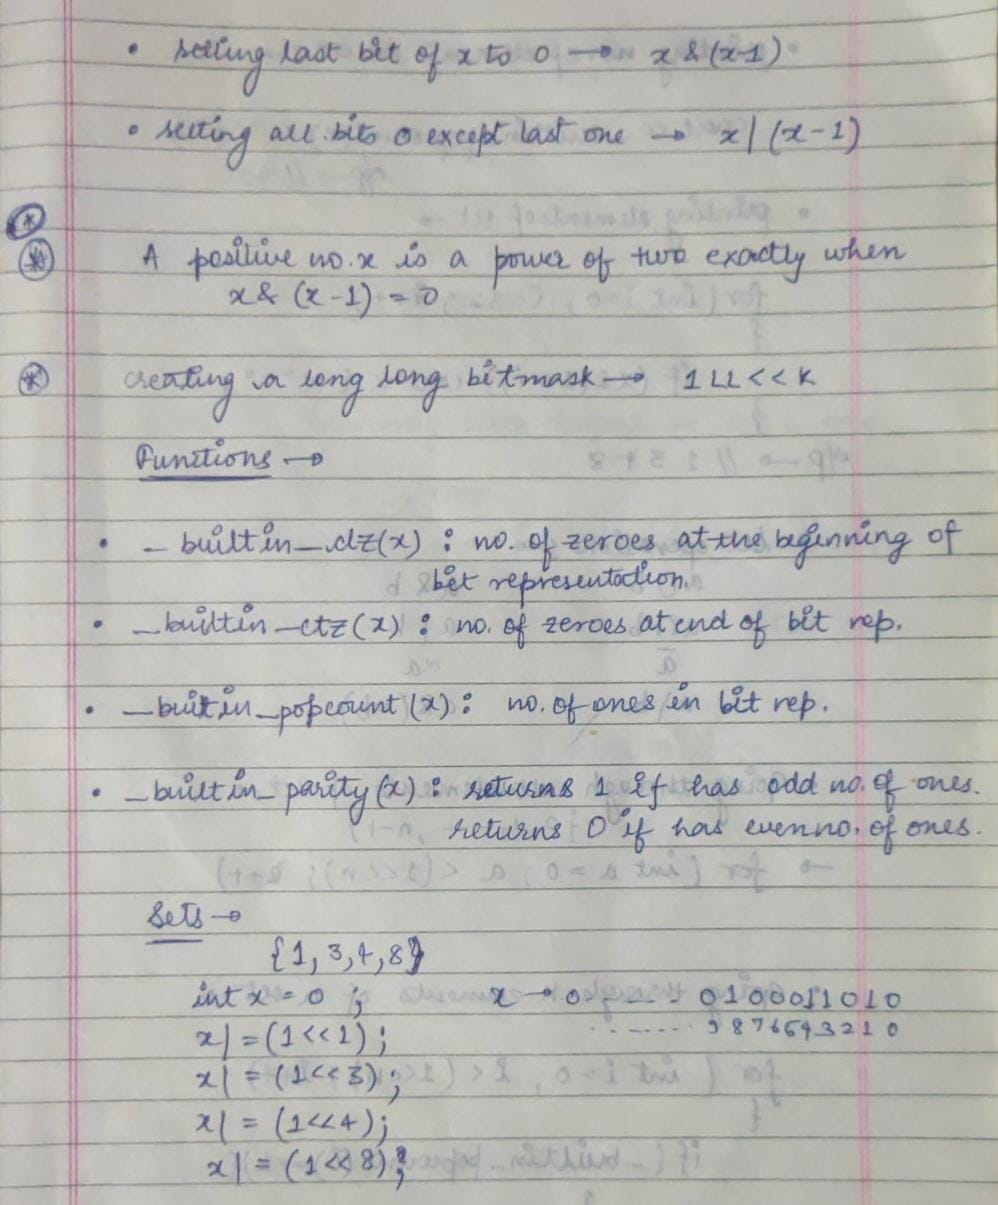 • setting last bit of x to 0 → x & (x-1)
• setting all bits 0 except last one → x | (x-1)
A positive no. x is a power of two exactly when
x & (x-1) = 0
creating a long long bitmask → 1LL<<K
Functions →
• _builtin_clz(x) : no. of zeroes at the beginning of
bit representation.
• _builtin_ctz(x) : no. of zeroes at end of bit rep.
• _builtin_popcount(x) : no. of ones in bit rep.
• _builtin_parity(x) : returns 1 if has odd no. of ones.
returns 0 if has even no. of ones.
Sets →
{1, 3, 4, 8}
int x = 0 ; x → 0 - - - - 0100011010
x| = (1<<1) ; ........ 9876543210
x| = (1<<3) ;
x| = (1<<4) ;
x| = (1<<8) ;